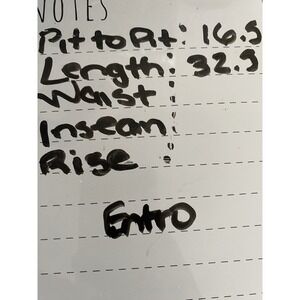 NOTES
Pit to Pit: 16.5
Length: 32.5
Waist:
Inseam:
Rise:
Entro